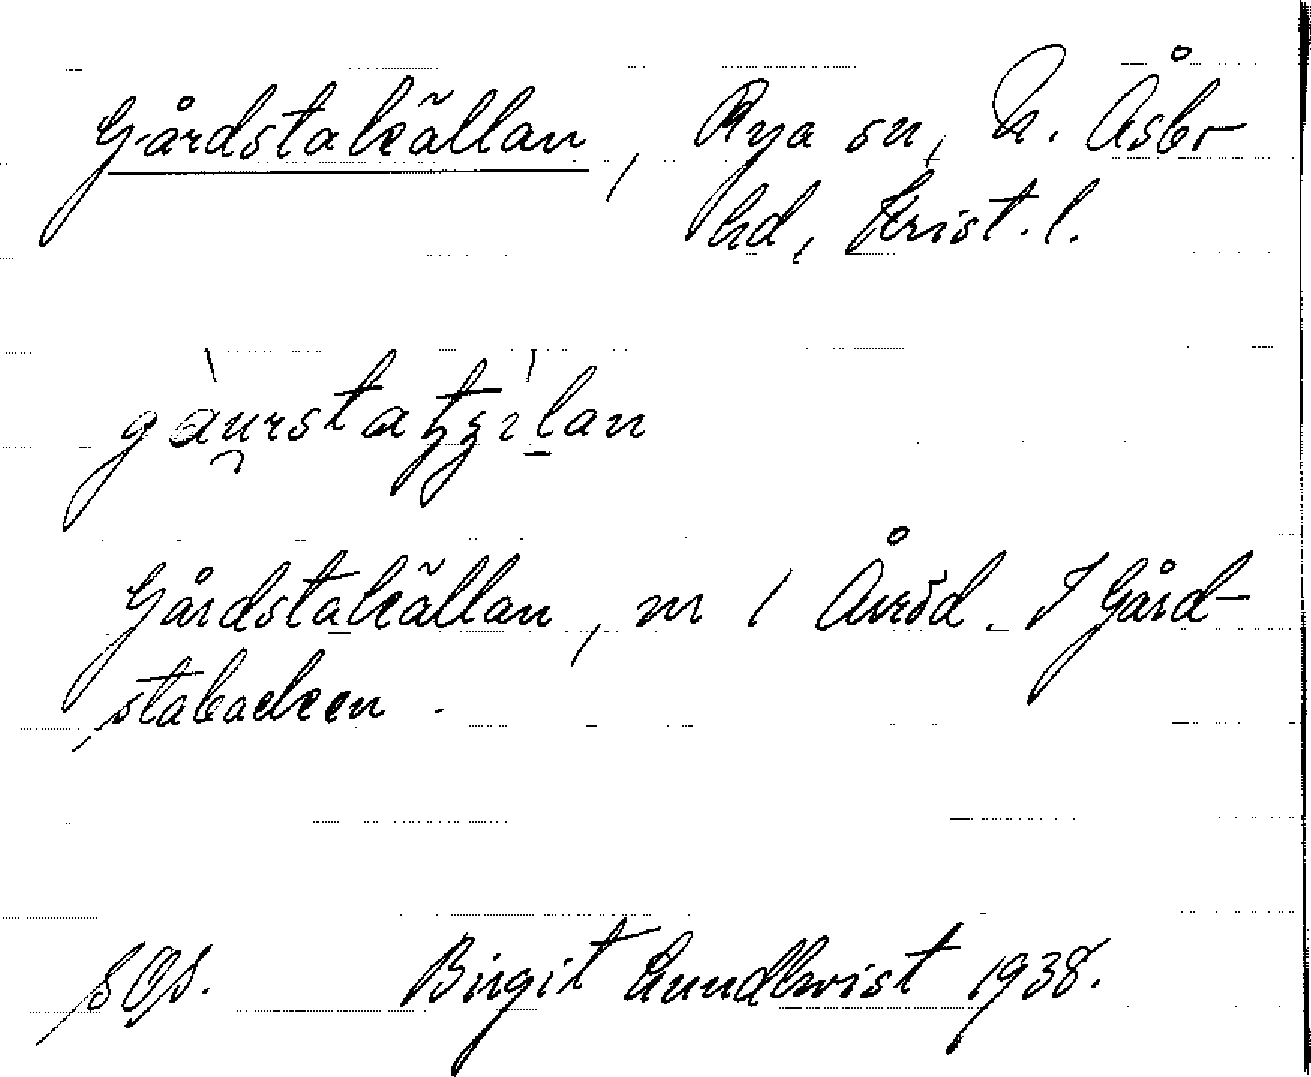 Gårdstakällan, Rya sn, N. Åsbo
hd, Krist. l.
Gårdstakällan, nr 1 Åvröd. I Gård-
stabacken.
SOS. Birgit Lundkvist 1938.